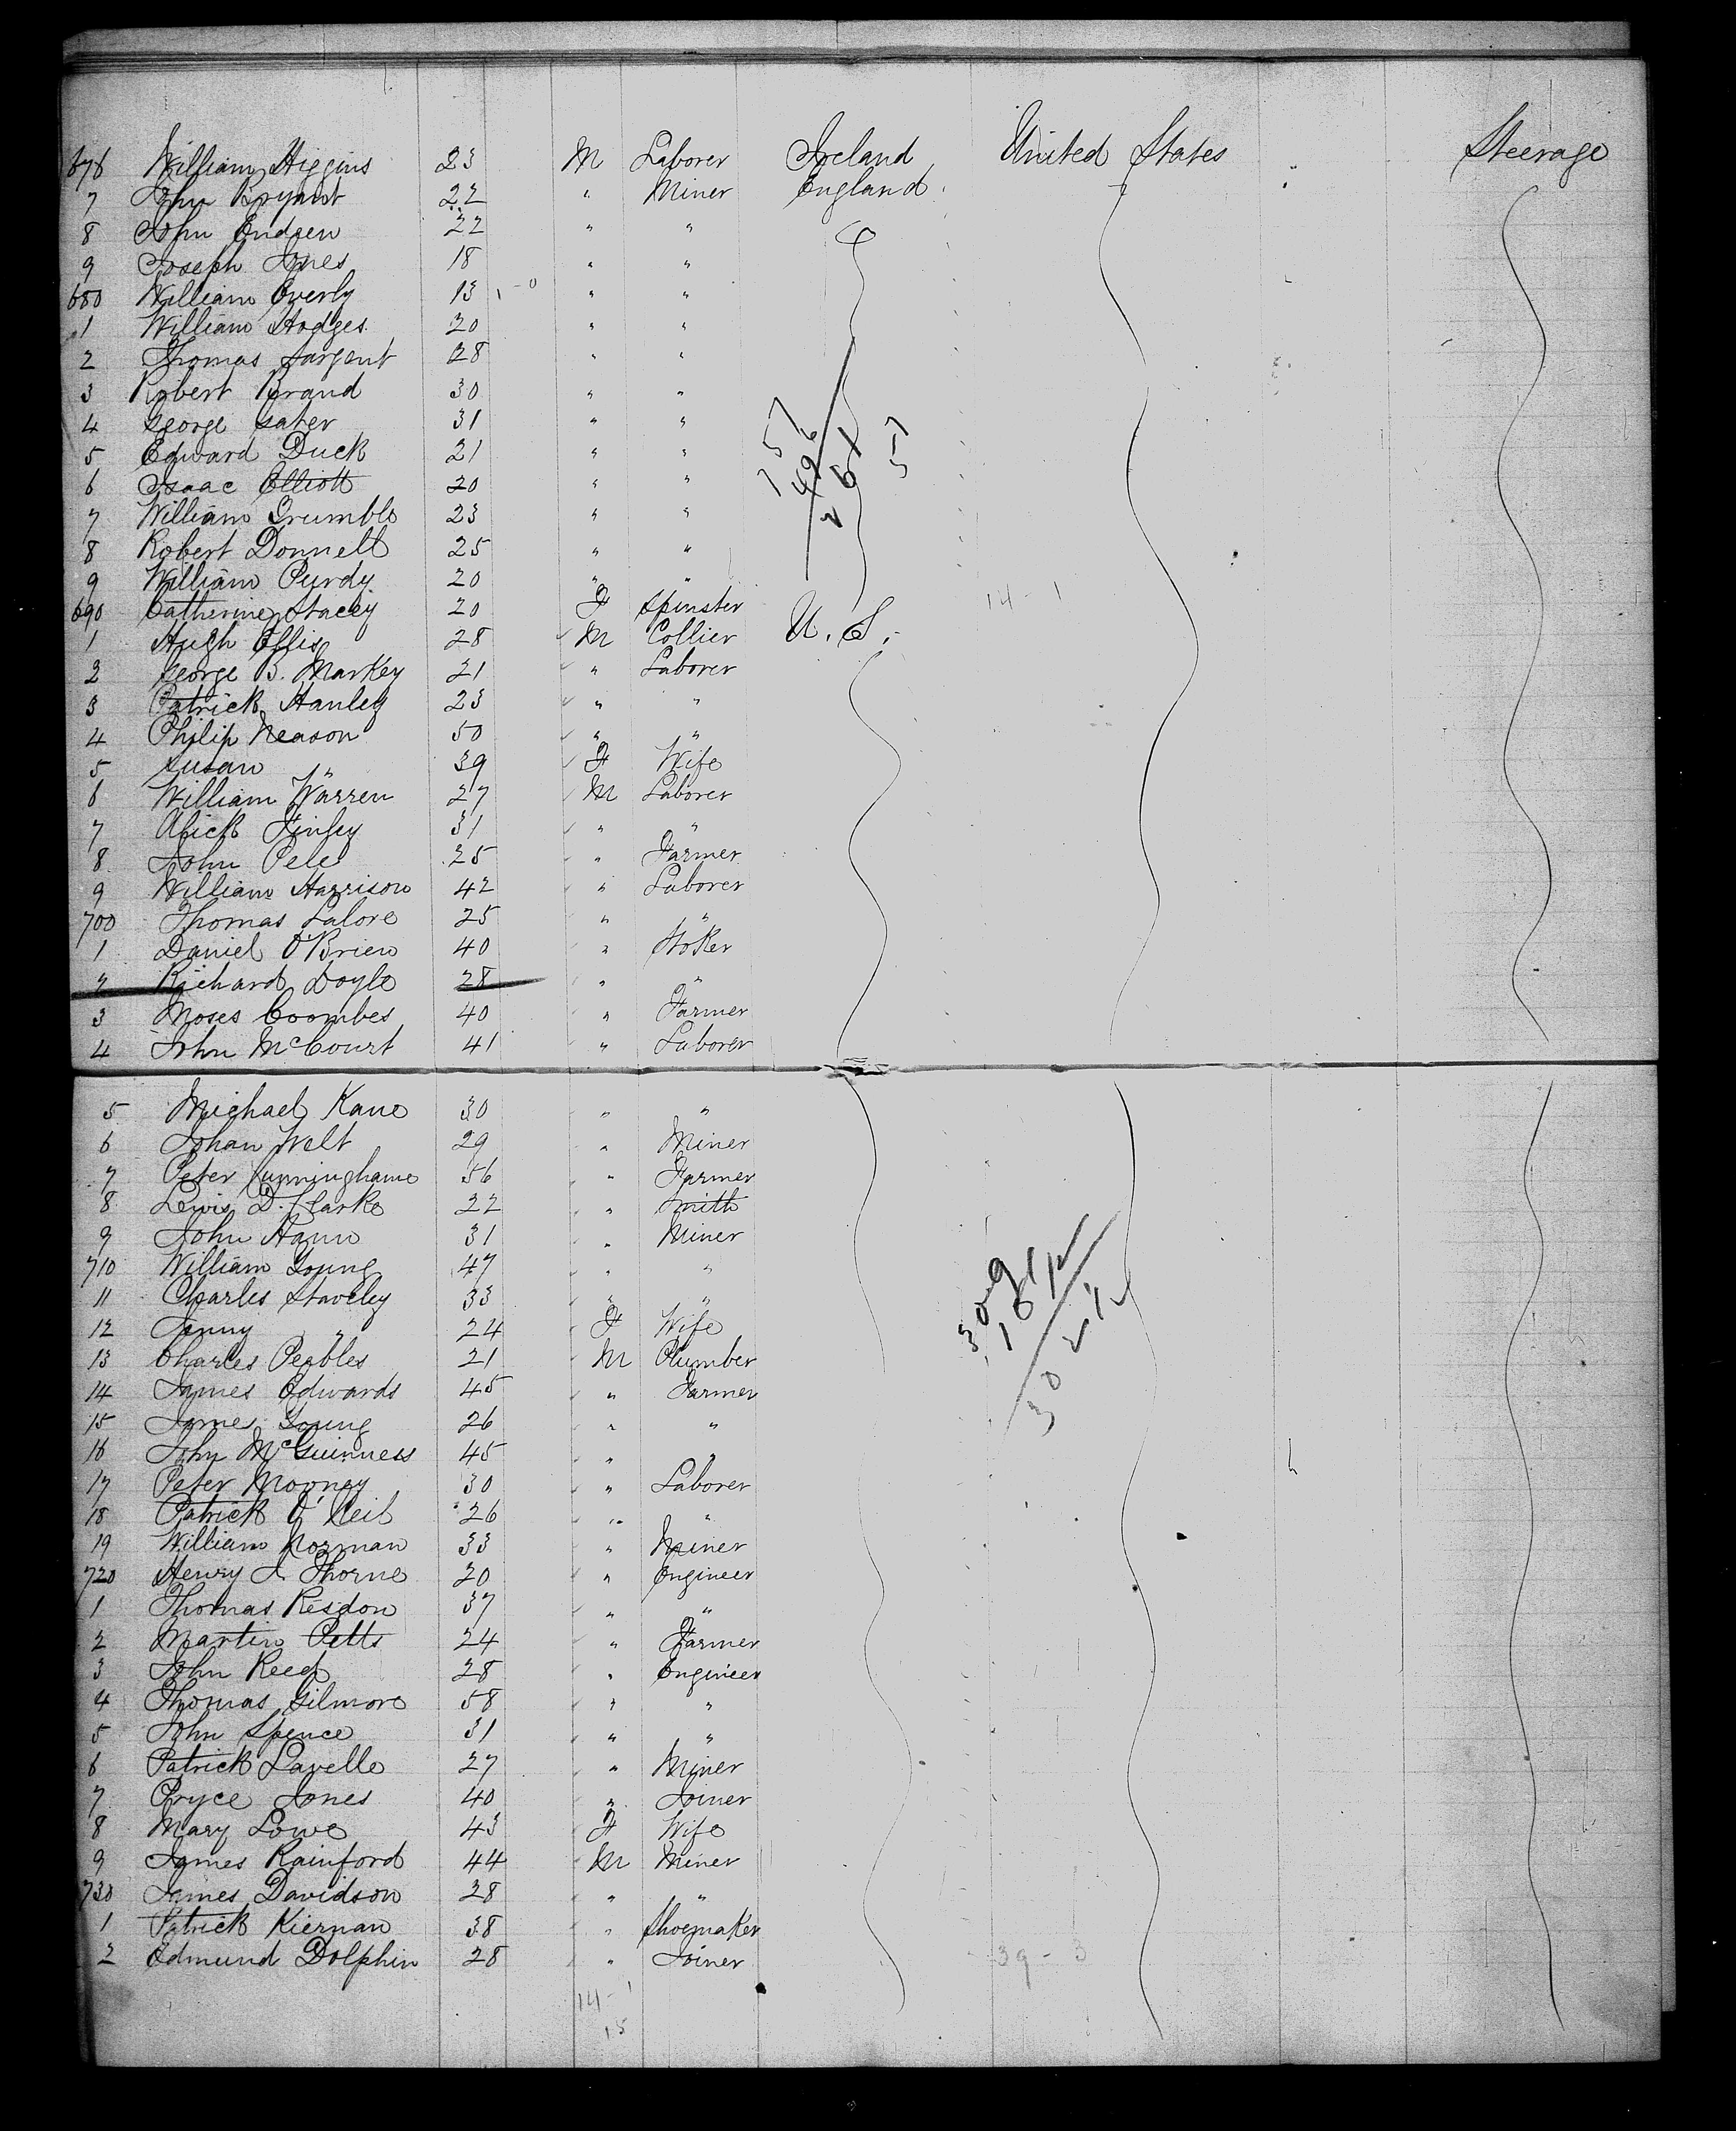 676 William Higgins 23 M Laborer Ireland United States Steerage
7 John Bryant 22 " Miner England
8 John Endsen 22 " "
9 Joseph Jones 18 " "
680 William Overly 13 " "
1 William Hodges 20 " "
2 Thomas Sargent 28 " "
3 Robert Brand 30 " "
4 George Sater 31 " "
5 Edward Duck 21 " "
6 Isaac Elliott 20 " "
7 William Grumble 23 " "
8 Robert Donnell 25 " "
9 William Purdy 20 " "
690 Catherine Stacey 20 F Spinster
1 Hugh Ellis 28 M Collier U. S.
2 George B. Markey 21 " Laborer
3 Patrick Hanley 23 " "
4 Philip Neason 50 " "
5 Susan " 39 F Wife
6 William Warren 27 M Laborer
7 Alick Finley 31 " "
8 John Pele 25 " Farmer
9 William Harrison 42 " Laborer
700 Thomas Lalore 25 " "
1 Daniel O'Brien 40 " Stoker
2 Richard Doyle 28 " "
3 Moses Coombes 40 " Farmer
4 John McCourt 41 " Laborer
5 Michael Kane 30 " "
6 Johan Welt 29 " Miner
7 Peter Cunninghame 56 " Farmer
8 Lewis D. Clarke 22 " Smith
9 John Hann 31 " Miner
710 William Young 47 " "
11 Charles Staveley 33 " "
12 Fanny " 24 F Wife
13 Charles Peebles 21 M Plumber
14 James Edwards 45 " Farmer
15 James Young 26 " "
16 John McGuinness 45 " "
17 Peter Mooney 30 " Laborer
18 Patrick O'Neil 26 " "
19 William Norman 33 " Miner
720 Henry J Thorne 20 " Engineer
1 Thomas Risdon 37 " "
2 Martin Petts 24 " Farmer
3 John Reed 28 " Engineer
4 Thomas Gilmore 58 " "
5 John Spence 31 " "
6 Patrick Lavelle 27 " Miner
7 Pryce Jones 40 " Joiner
8 Mary Lowe 43 F Wife
9 James Rainford 44 M Miner
730 James Davidson 28 " "
1 Patrick Kiernan 38 " Shoemaker
2 Edmund Dolphin 28 " Joiner
39 - 3
14 - 1
15